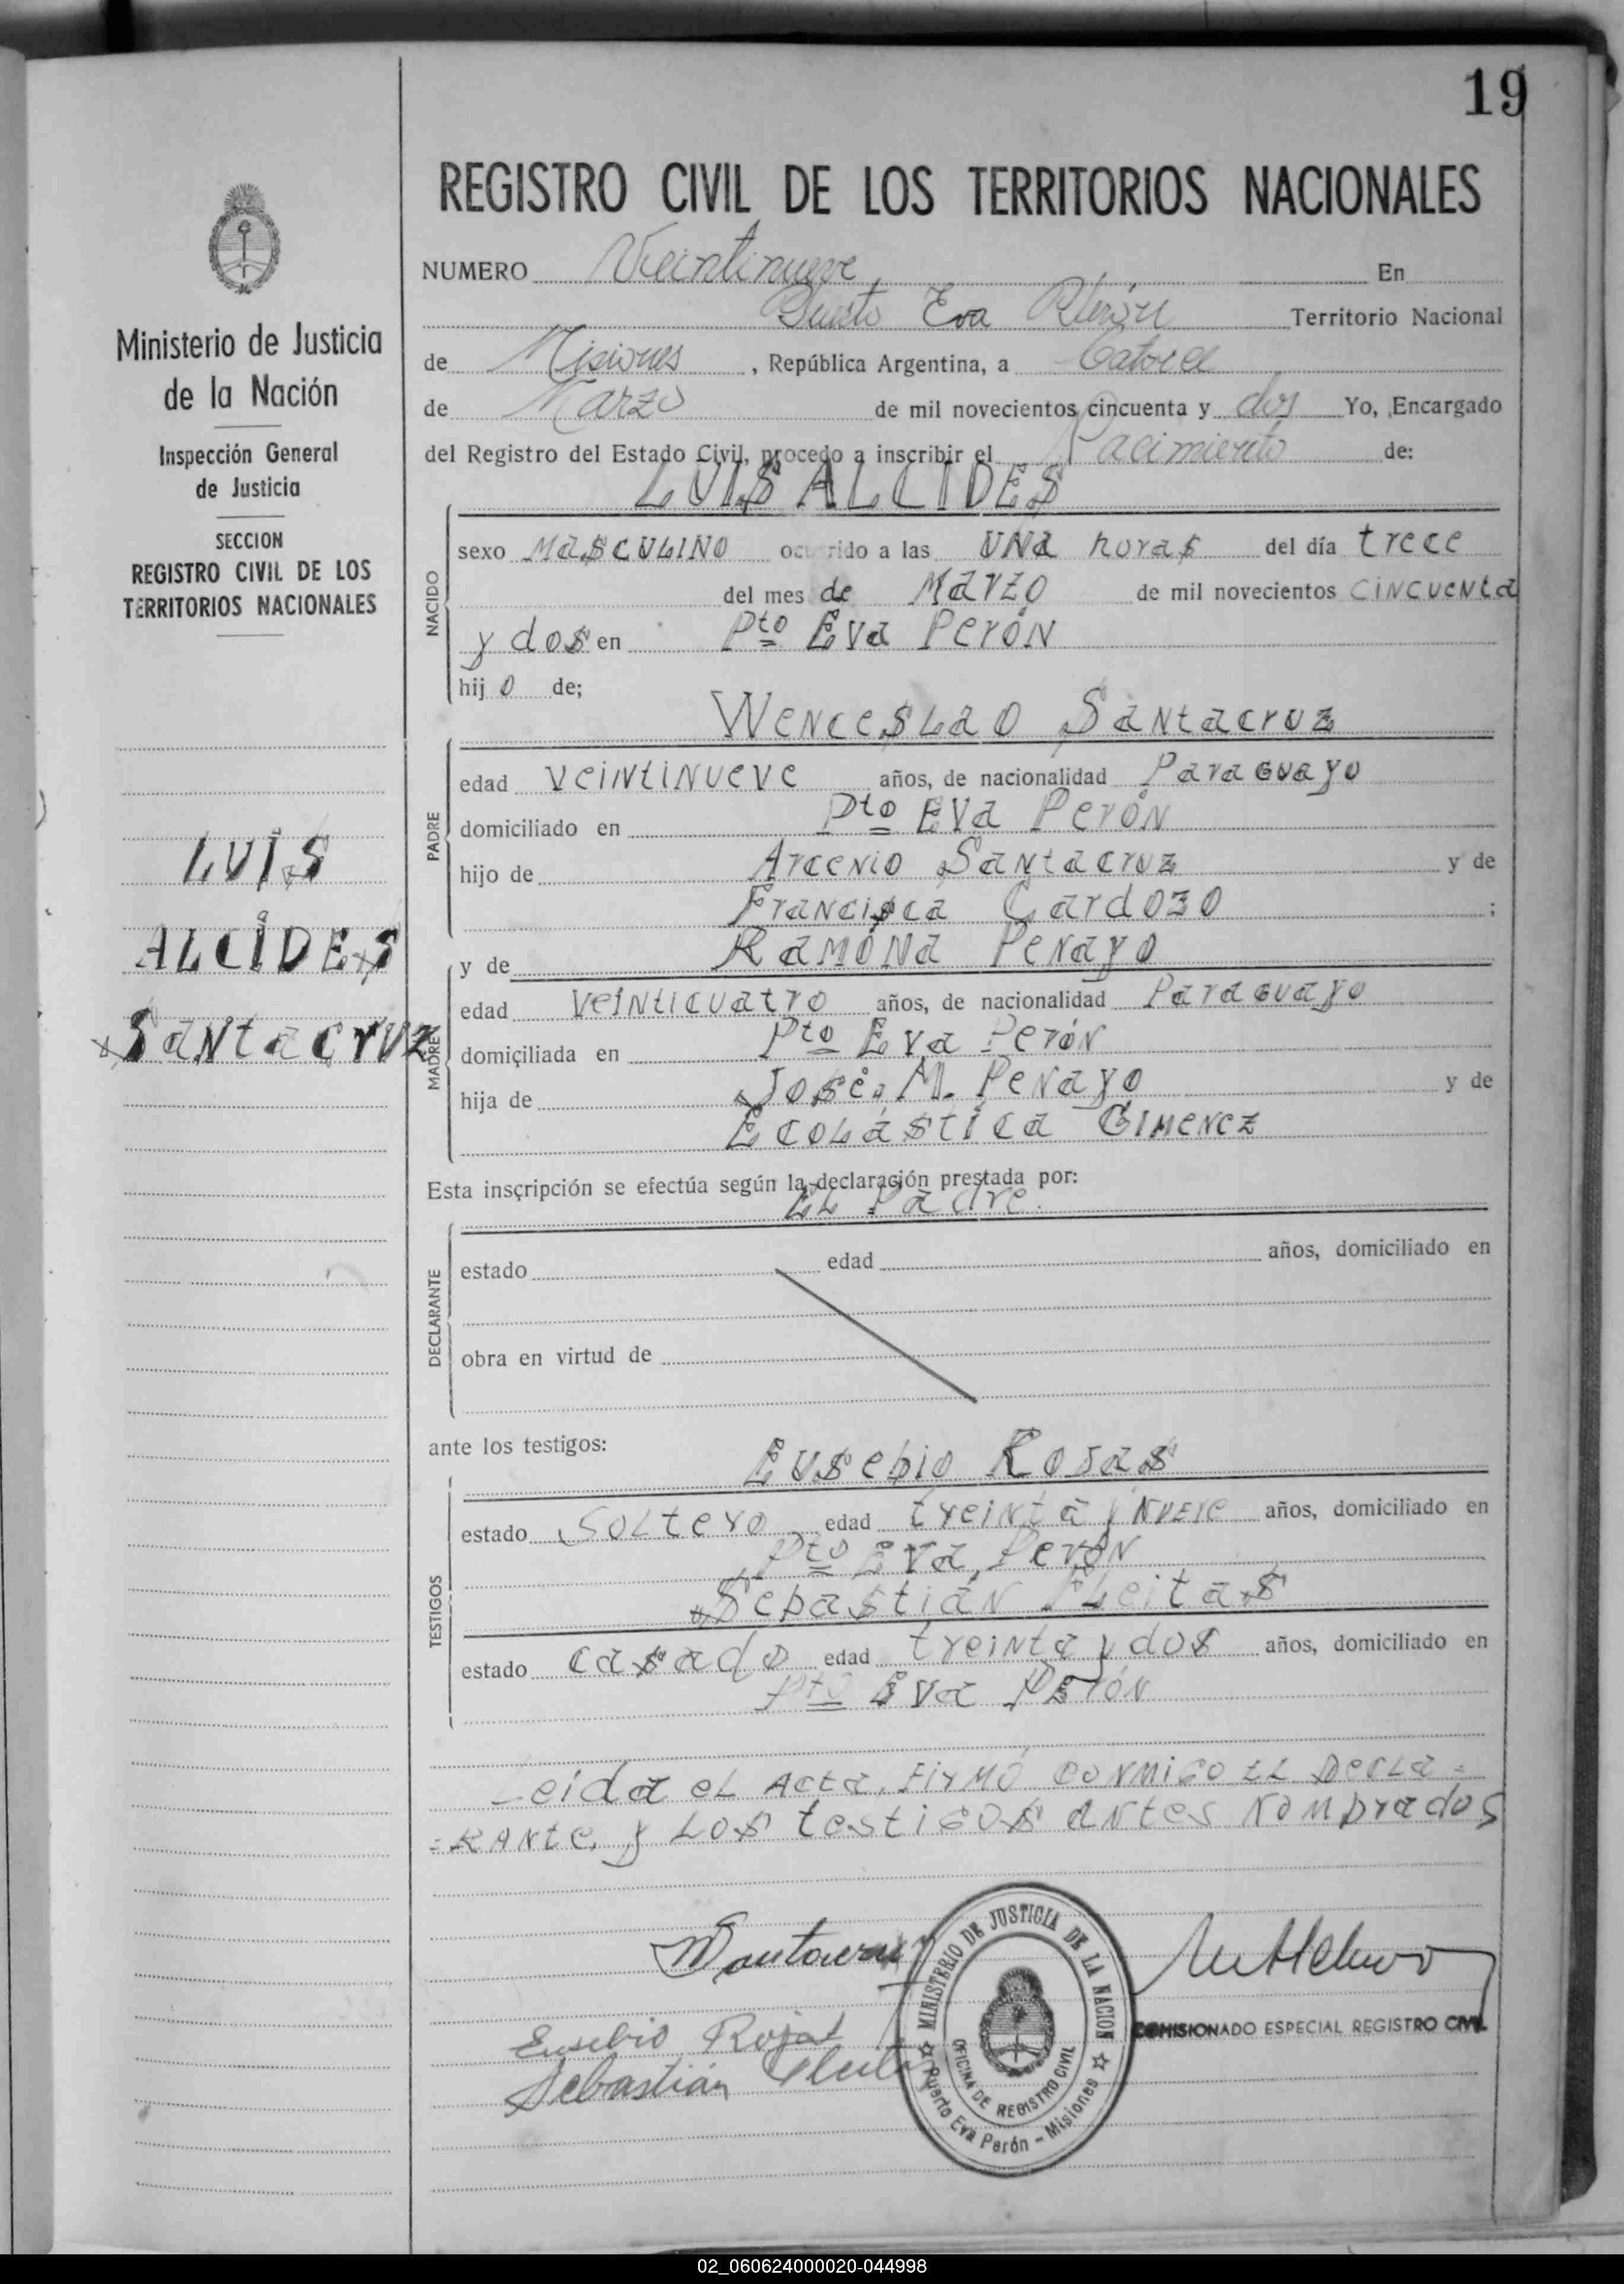 19
REGISTRO CIVIL DE LOS TERRITORIOS NACIONALES
NUMERO Veintinueve En
Puerto Eva Perón Territorio Nacional
de Misiones, República Argentina, a Catorce
de Marzo de mil novecientos cincuenta y dos Yo, Encargado
del Registro del Estado Civil, procedo a inscribir el Nacimiento de:
LUIS ALCIDES
NACIDO
sexo Masculino ocurrido a las una horas del día trece
del mes de Marzo de mil novecientos cincuenta
y dos en Pto Eva Perón
hijo de;
Wenceslao Santacruz
PADRE
edad veintinueve años, de nacionalidad Paraguayo
domiciliado en Pto Eva Perón
hijo de Arcenio Santacruz y de
Francisca Cardozo ;
y de Ramóna Penayo
MADRE
edad veinticuatro años, de nacionalidad Paraguayo
domiciliada en Pto Eva Perón
hija de José. M. Penayo y de
Ecolástica Gimenez
Esta inscripción se efectúa según la declaración prestada por:
El Padre.
DECLARANTE
estado edad años, domiciliado en
obra en virtud de
ante los testigos:
Eusebio Rojas
TESTIGOS
estado Soltero edad treinta y nueve años, domiciliado en
Pto Eva Perón
Sebastián Fleitas
estado casado edad treinta y dos años, domiciliado en
Pto Eva Perón
Leida el Acta, firmó conmigo el Decla=
=rante, y los testigos antes nombrados
Santacruz
Eusebio Rojas
Sebastián Fleitas
MINISTERIO DE JUSTICIA DE LA NACION
OFICINA DE REGISTRO CIVIL
Puerto Eva Perón - Misiones
COMISIONADO ESPECIAL REGISTRO CIVIL
Ministerio de Justicia
de la Nación
Inspección General
de Justicia
SECCION
REGISTRO CIVIL DE LOS
TERRITORIOS NACIONALES
LUIS
ALCIDES
Santacruz
02_060624000020-044998